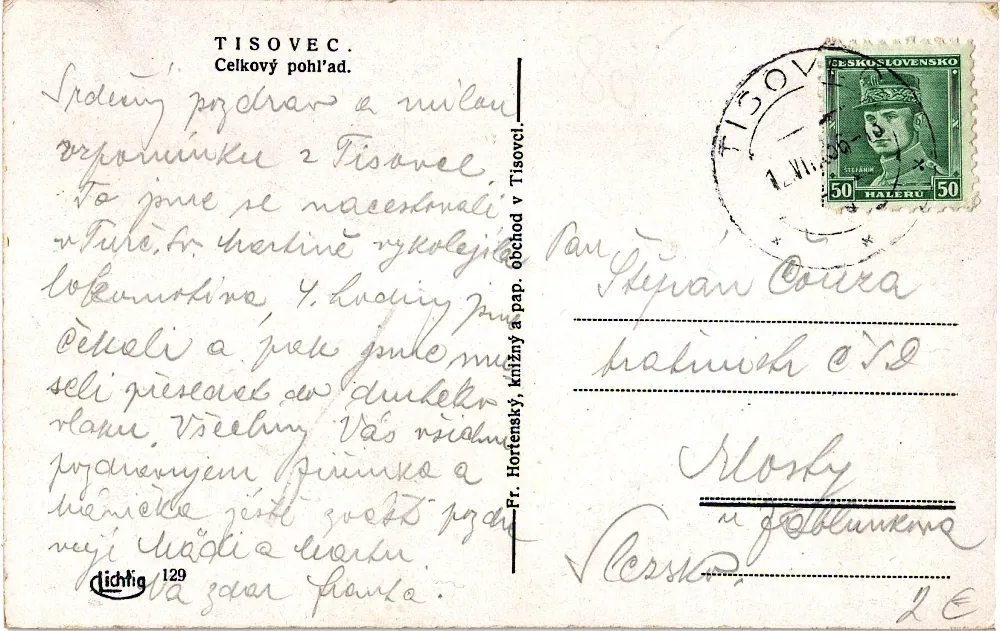 TISOVEC.
Celkový pohľad.
Srdečný pozdrav a milou
vzpomínku z Tisovce.
To jsme se nacestovali
v Turč. Sv. Martině vykolejila
lokomotiva, 4. hodiny jsme
čekali a pak jsme mu
seli přesedat do druhého
vlaku. Všechny Vás všichni
pozdravujem Jiřinka a
ještě zvášť pozdra
vuji Mádi a Martu
zdar Franta.
Lichtig 129
Fr. Hortenský, knižný a pap. obchod v Tisovci.
TISOV
ČESKOSLOVENSKO
ŠTEFÁNIK
50 50
HALÉŘŮ
Pan
Štěpán Couza
ČSD
Mosty
u Jablunkova
Slezsko.
2 €